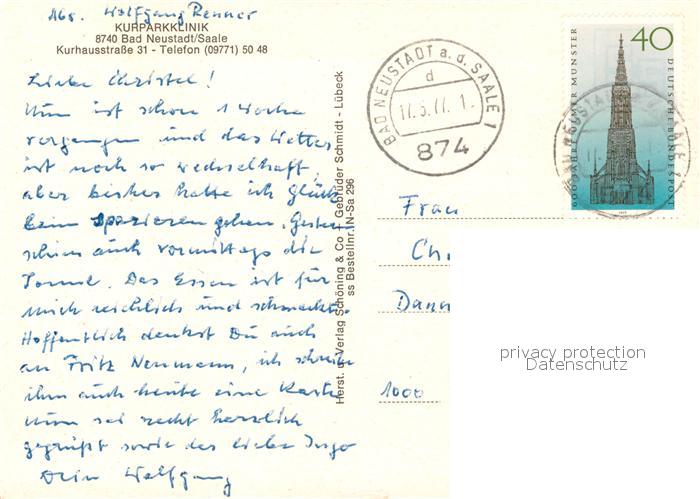 Abs. Wolfgang Renner
KURPARKKLINIK
8740 Bad Neustadt/Saale
Kurhausstraße 31 - Telefon (09771) 50 48
Liebe Christel!
Nun ist schon 1 Woche
vergangen und das Wetter
ist noch so wechselhaft,
aber bisher hatte ich Glück
beim spazieren gehen. Gestern
schien auch vormittags die
Sonne. Das Essen ist für
mich reichlich und schmeckt.
Hoffentlich denkst Du auch
an Fritz Neumann, ich schreibe
ihm auch heute eine Karte
Nun sei recht herzlich
gegrüßt sowie das liebe Ingo
Dein Wolfgang
Herst. u. Verlag Schöning & Co + Gebrüder Schmidt - Lübeck
ss Bestellnr. N-Sa 296
BAD NEUSTADT a. d. SAALE 1
d
17.5.77. 1
874
40
600 JAHRE ULMER MÜNSTER
DEUTSCHE BUNDESPOST
1977
Frau
Ch
Dann
1000
privacy protection
Datenschutz